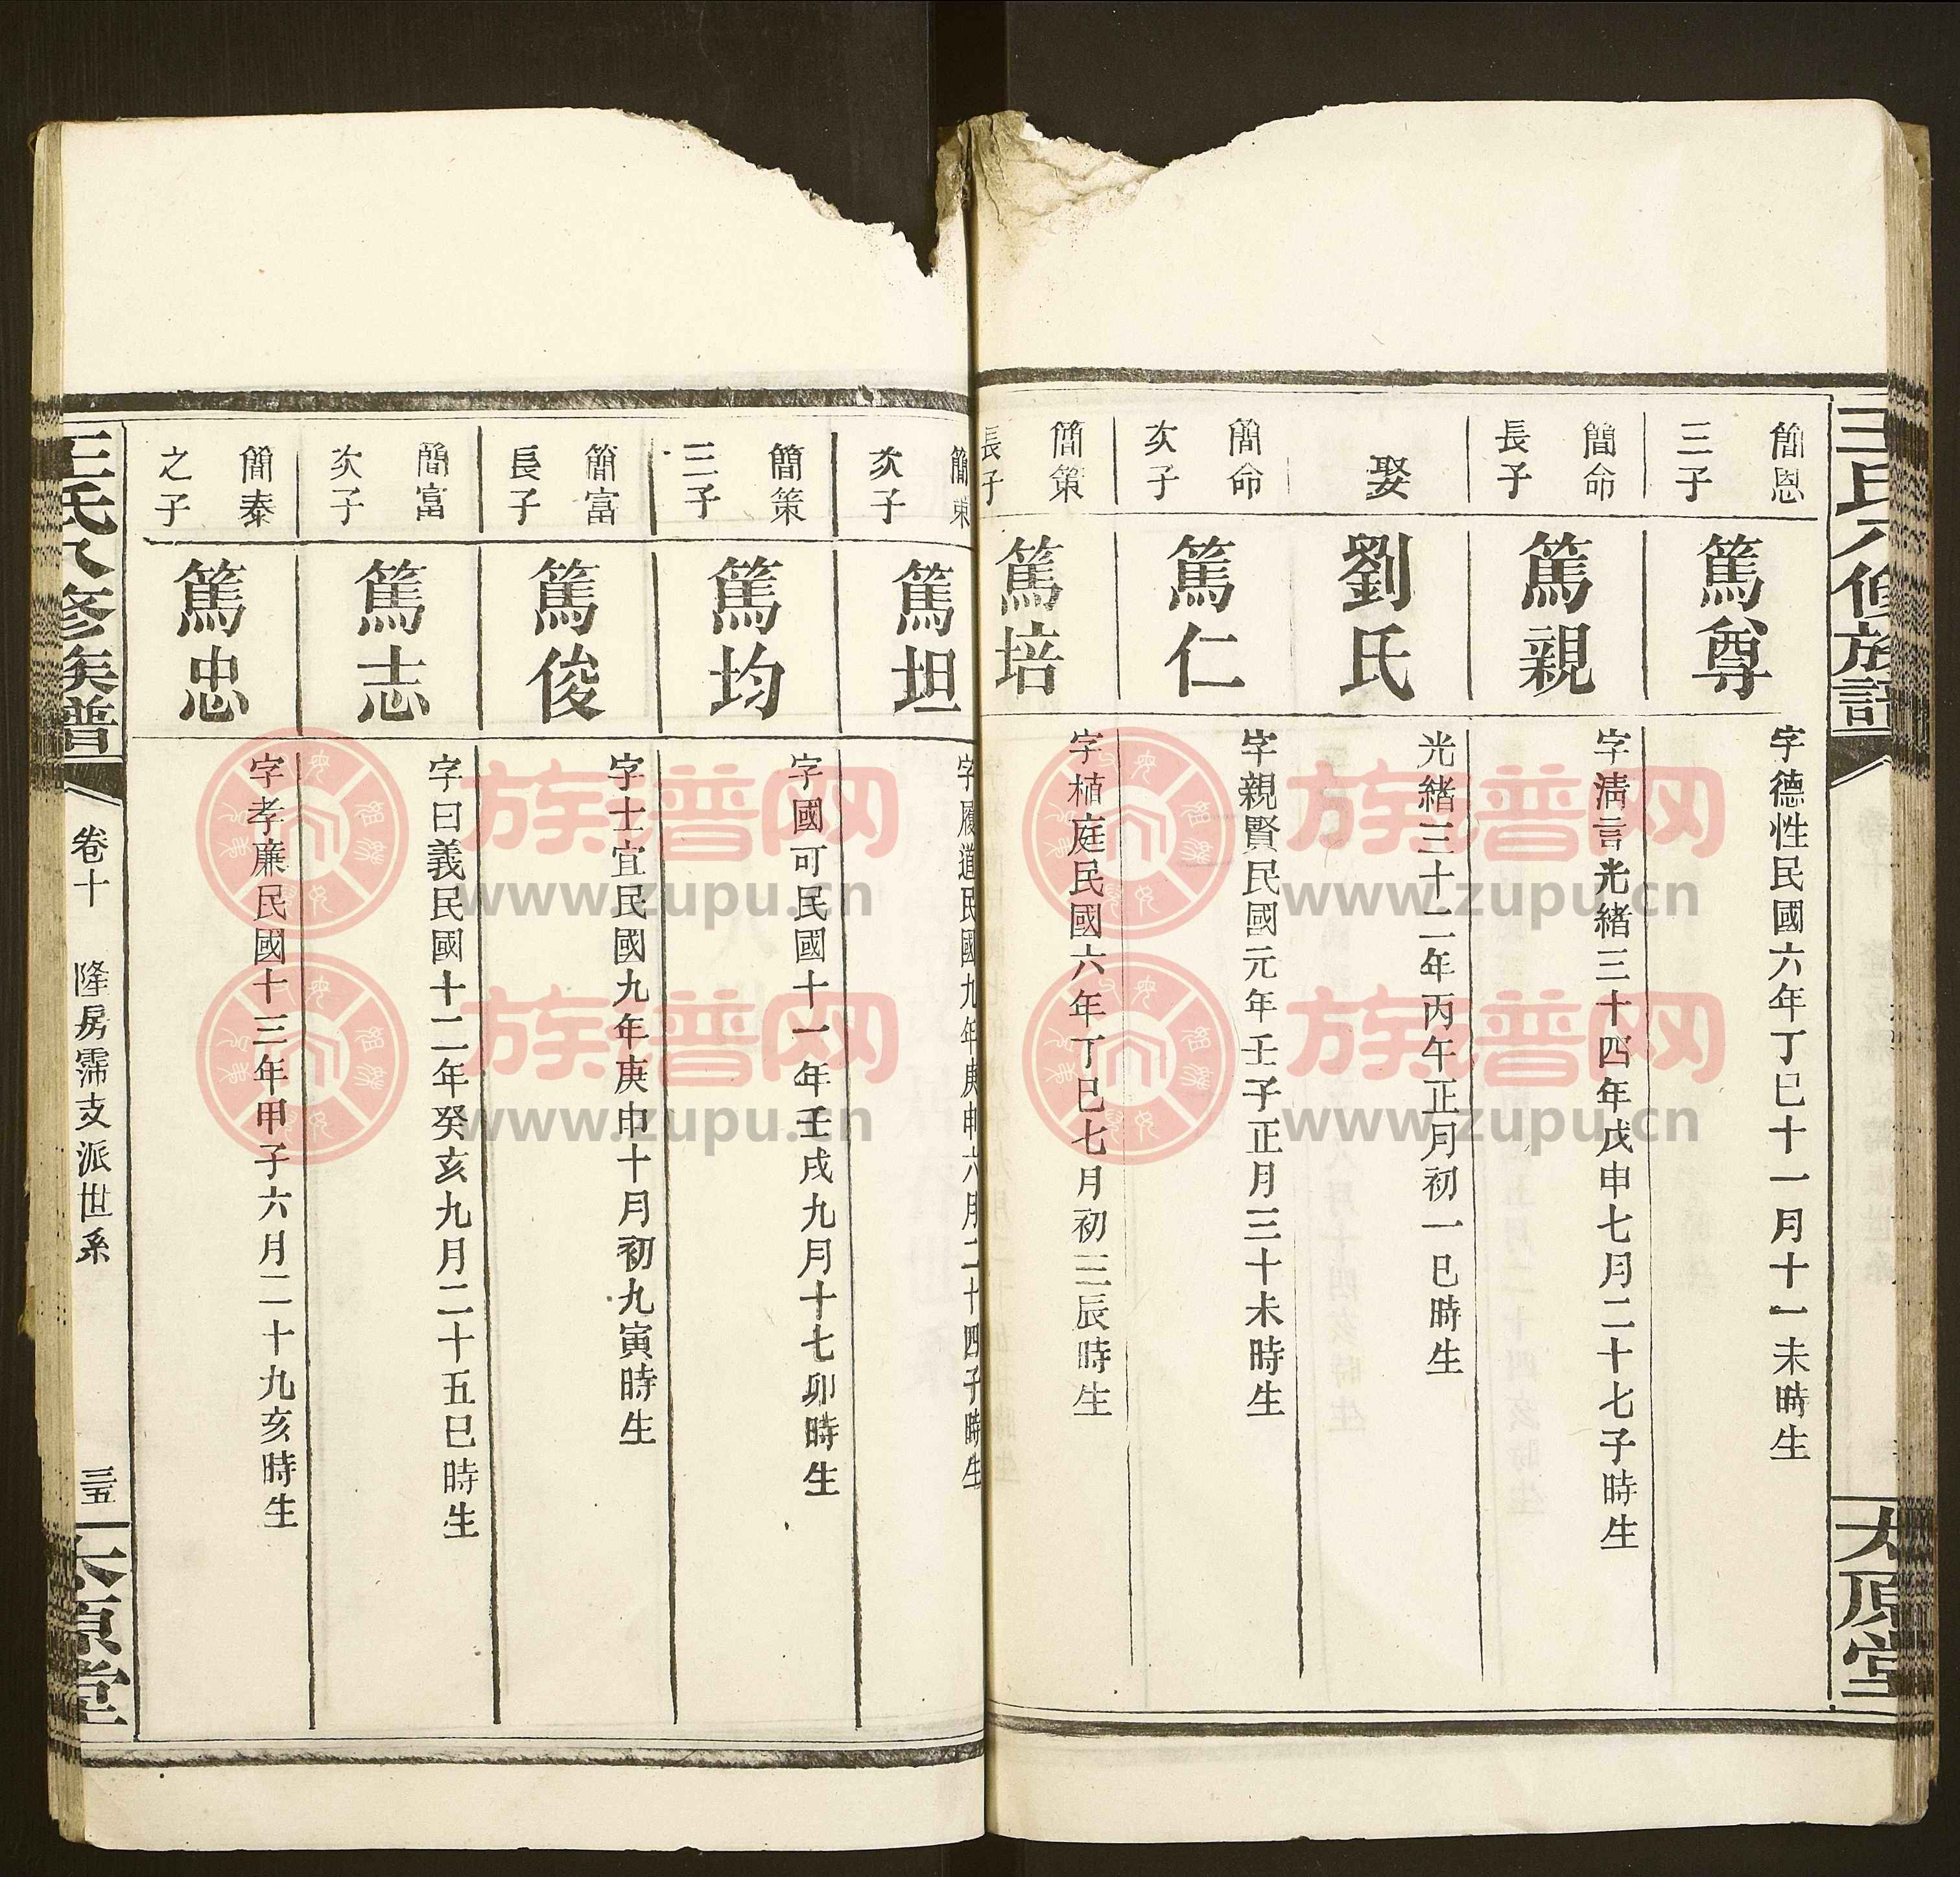 王氏八修族譜
太原堂
簡恩
三子
篤尊
字德性民國六年丁巳十一月十一未時生
簡命
長子
篤親
字清言光緒三十四年戊申七月二十七子時生
娶
劉氏
光緒三十二年丙午正月初一巳時生
簡命
次子
篤仁
字親賢民國元年壬子正月三十未時生
簡策
長子
篤培
字植庭民國六年丁巳七月初三辰時生
次子
篤坦
字履道民國九年庚申六月二十四子時生
簡策
三子
篤均
字國可民國十一年壬戌九月十七卯時生
簡富
長子
篤俊
字士宜民國九年庚申十月初九寅時生
簡富
次子
篤志
字曰義民國十二年癸亥九月二十五巳時生
簡泰
之子
篤忠
字孝廉民國十三年甲子六月二十九亥時生
王氏八修族譜
卷十
隆房霈支派世系
三五
太原堂
族譜网
www.zupu.cn
族譜网
www.zupu.cn
族譜网
www.zupu.cn
族譜网
www.zupu.cn